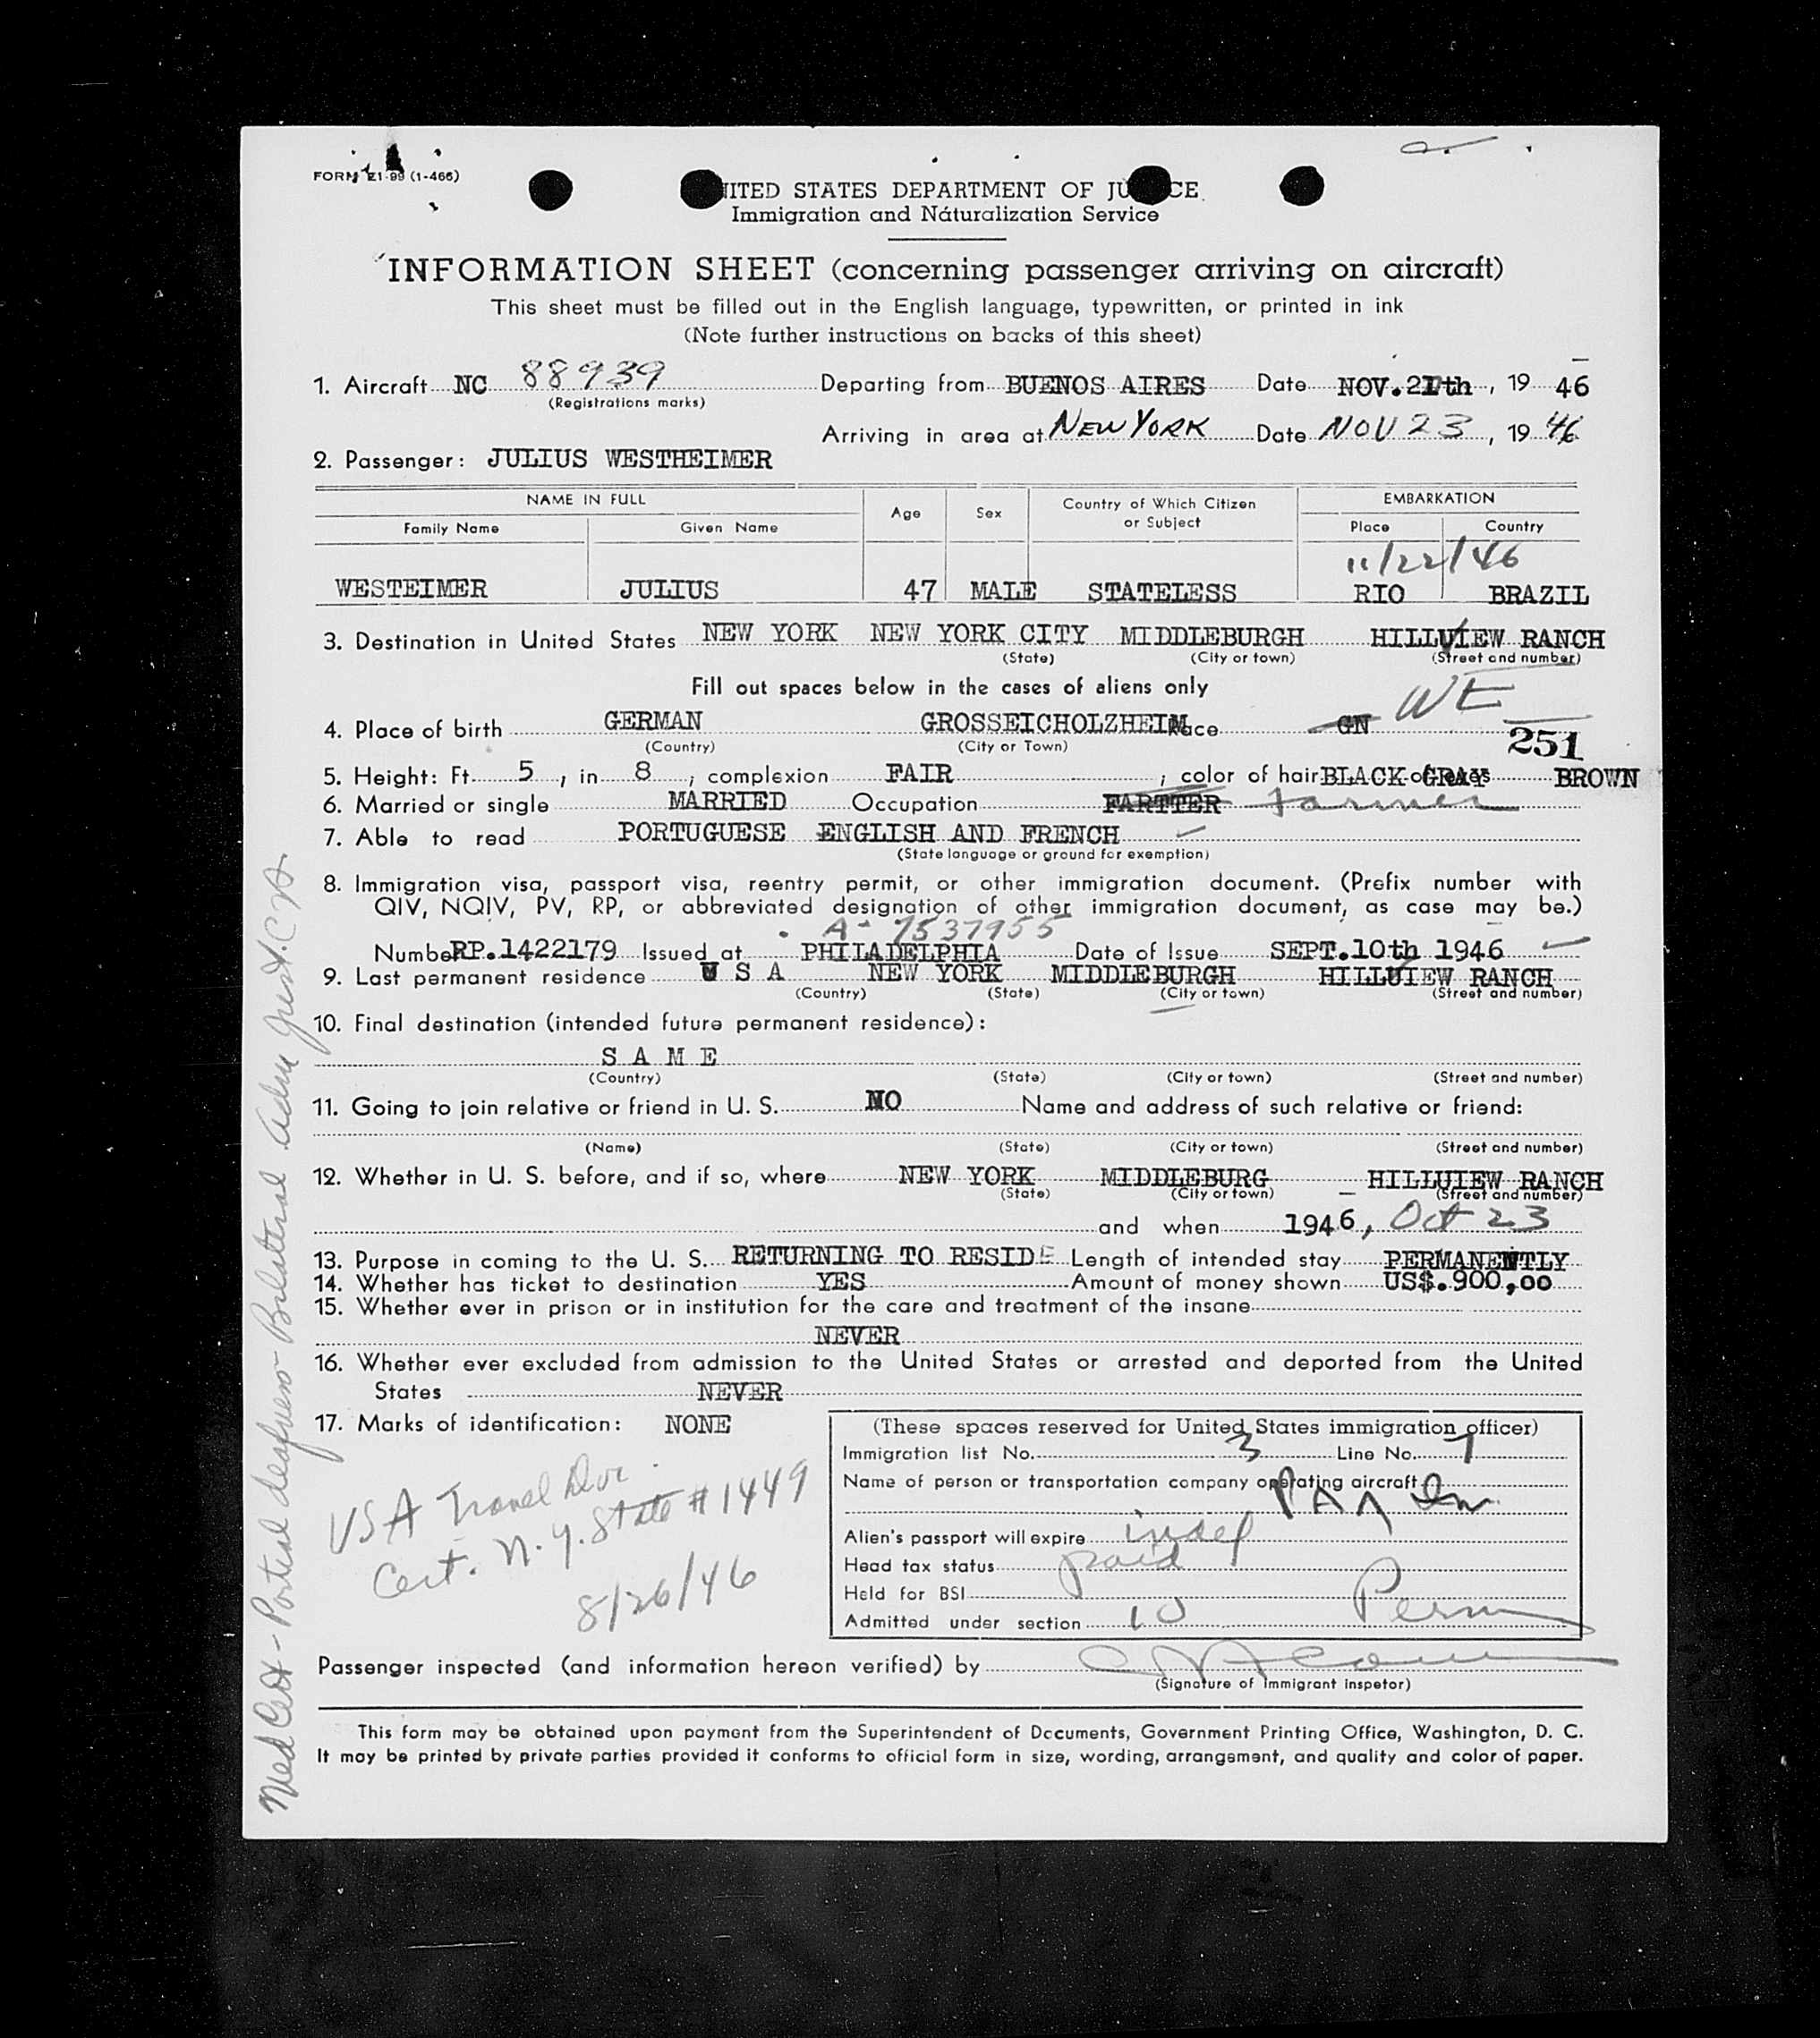 FORM I-99 (1-466)
UNITED STATES DEPARTMENT OF JUSTICE
Immigration and Naturalization Service
INFORMATION SHEET (concerning passenger arriving on aircraft)
This sheet must be filled out in the English language, typewritten, or printed in ink
(Note further instructions on backs of this sheet)
1. Aircraft NC 88939 Departing from BUENOS AIRES Date NOV.21th, 19 46
(Registrations marks)
Arriving in area at NEW YORK Date NOV 23, 19 46
2. Passenger: JULIUS WESTHEIMER
NAME IN FULL Age Sex Country of Which Citizen or Subject EMBARKATION
Family Name Given Name Place Country
11/22/46
WESTEIMER JULIUS 47 MALE STATELESS RIO BRAZIL
3. Destination in United States NEW YORK NEW YORK CITY MIDDLEBURGH HILLVIEW RANCH
(State) (City or town) (Street and number)
Fill out spaces below in the cases of aliens only
WE
4. Place of birth GERMAN GROSSEICHOLZHEIM Race GN
(Country) (City or Town)
251
5. Height: Ft. 5, in 8; complexion FAIR; color of hair BLACK GRAY of eyes BROWN
6. Married or single MARRIED Occupation FARTTER farmer
7. Able to read PORTUGUESE ENGLISH AND FRENCH
(State language or ground for exemption)
8. Immigration visa, passport visa, reentry permit, or other immigration document. (Prefix number with
QIV, NQIV, PV, RP, or abbreviated designation of other immigration document, as case may be.)
A- 7537955
Number RP.1422179 Issued at PHILADELPHIA Date of Issue SEPT.10th 1946
9. Last permanent residence U S A NEW YORK MIDDLEBURGH HILLUIEW RANCH
(Country) (State) (City or town) (Street and number)
10. Final destination (intended future permanent residence):
S A M E
(Country) (State) (City or town) (Street and number)
11. Going to join relative or friend in U. S. NO Name and address of such relative or friend:
(Name) (State) (City or town) (Street and number)
12. Whether in U. S. before, and if so, where NEW YORK MIDDLEBURG HILLUIEW RANCH
(State) (City or town) (Street and number)
and when 1946, Oct 23
13. Purpose in coming to the U. S. RETURNING TO RESIDE Length of intended stay PERMANENTLY
14. Whether has ticket to destination YES Amount of money shown US$.900,00
15. Whether ever in prison or in institution for the care and treatment of the insane
NEVER
16. Whether ever excluded from admission to the United States or arrested and deported from the United
States NEVER
17. Marks of identification: NONE
USA Travel Div.
Cert. N.Y. State #1449
8/26/46
(These spaces reserved for United States immigration officer)
Immigration list No. 3 Line No. 7
Name of person or transportation company operating aircraft
PAA
Alien's passport will expire indef
Head tax status paid
Held for BSI
Admitted under section 10 Perm
Passenger inspected (and information hereon verified) by
(Signature of Immigrant inspetor)
This form may be obtained upon payment from the Superintendent of Documents, Government Printing Office, Washington, D. C.
It may be printed by private parties provided it conforms to official form in size, wording, arrangement, and quality and color of paper.
Med Cert - Partial deafness Bilateral Adm